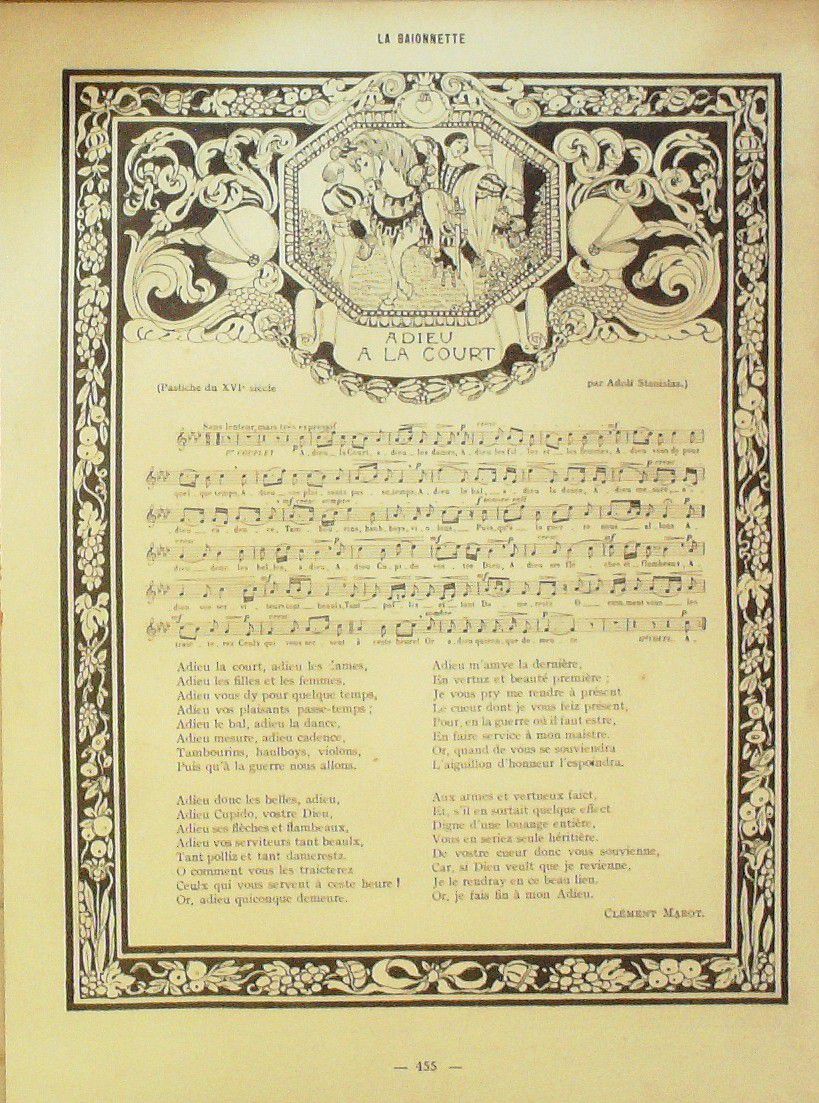 LA BAIONNETTE
ADIEU
A LA COURT
(Pastiche du XVIe siècle
par Adolf Stanislas.)
Sans lenteur, mais très expressif
1er COUPLET A. dieu la Court, a. dieu les dames, A. dieu les fil les et les femmes, A dieu vous dy pour
quel. que temps, A. dieu vos plai. sants pas se. temps; A. dieu le bal, a. dieu la dance, A dieu me. sure, a.
dieu ca. den. ce, Tam bou. rins, haub. boys, vi. o. lons, Puis qu'à la guer. re nous al. lons A.
dieu donc les bel. les, a. dieu, A. dieu Cu. pi. do vos. tre Dieu, A. dieu ses flè. ches et flambeaux, A.
dieu vos ser vi teurs tant beaulx, Tant pol liz et tant Da me. retz O comment vous les
traic. te. rez Ceulx qui vous ser. vent à ceste heure! Or a. dieu quicon. que de. meu. re A.
Adieu la court, adieu les dames,
Adieu les filles et les femmes,
Adieu vous dy pour quelque temps,
Adieu vos plaisants passe-temps ;
Adieu le bal, adieu la dance,
Adieu mesure, adieu cadence,
Tambourins, haulboys, violons,
Puis qu'à la guerre nous allons.
Adieu donc les belles, adieu,
Adieu Cupido, vostre Dieu,
Adieu ses flèches et flambeaux,
Adieu vos serviteurs tant beaulx,
Tant polliz et tant damerestz.
O comment vous les traicterez
Ceulx qui vous servent à ceste heure !
Or, adieu quiconque demeure.
Adieu m'amye la dernière,
En vertuz et beauté première ;
Je vous pry me rendre à présent
Le cueur dont je vous feiz présent,
Pour, en la guerre où il faut estre,
En faire service à mon maistre.
Or, quand de vous se souviendra
L'aiguillon d'honneur l'espoindra.
Aux armes et vertueux faict,
Et, s'il en sortait quelque effect
Digne d'une louange entière,
Vous en seriez seule héritière.
De vostre cueur donc vous souvienne,
Car, si Dieu veult que je revienne,
Je le rendray en ce beau lieu.
Or, je fais fin à mon Adieu.
CLÉMENT MAROT.
— 455 —